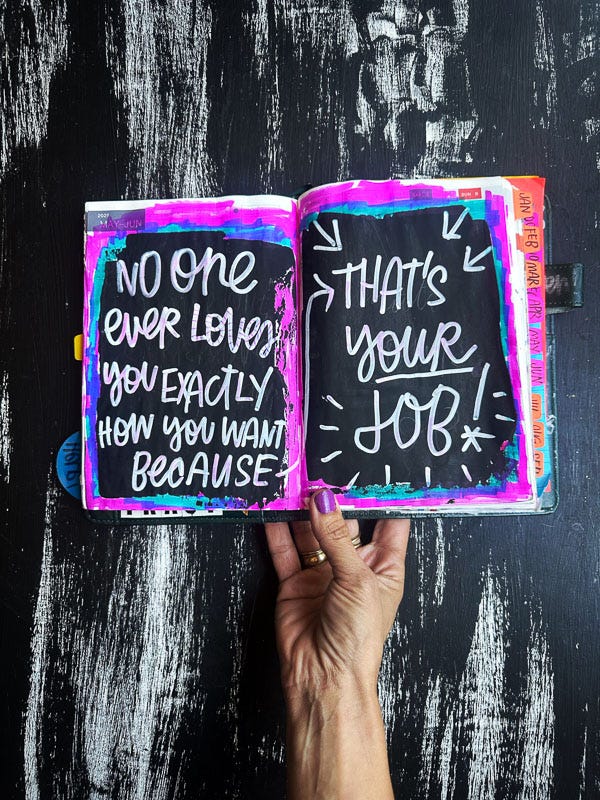 2021
MAY-JUN
NO ONE
EVER LOVES
YOU EXACTLY
HOW YOU WANT
BECAUSE
SUN 6
THAT'S
YOUR
JOB!
JAN
FEB
MAR
APR
MAY
JUN
JUL
AUG
SEP